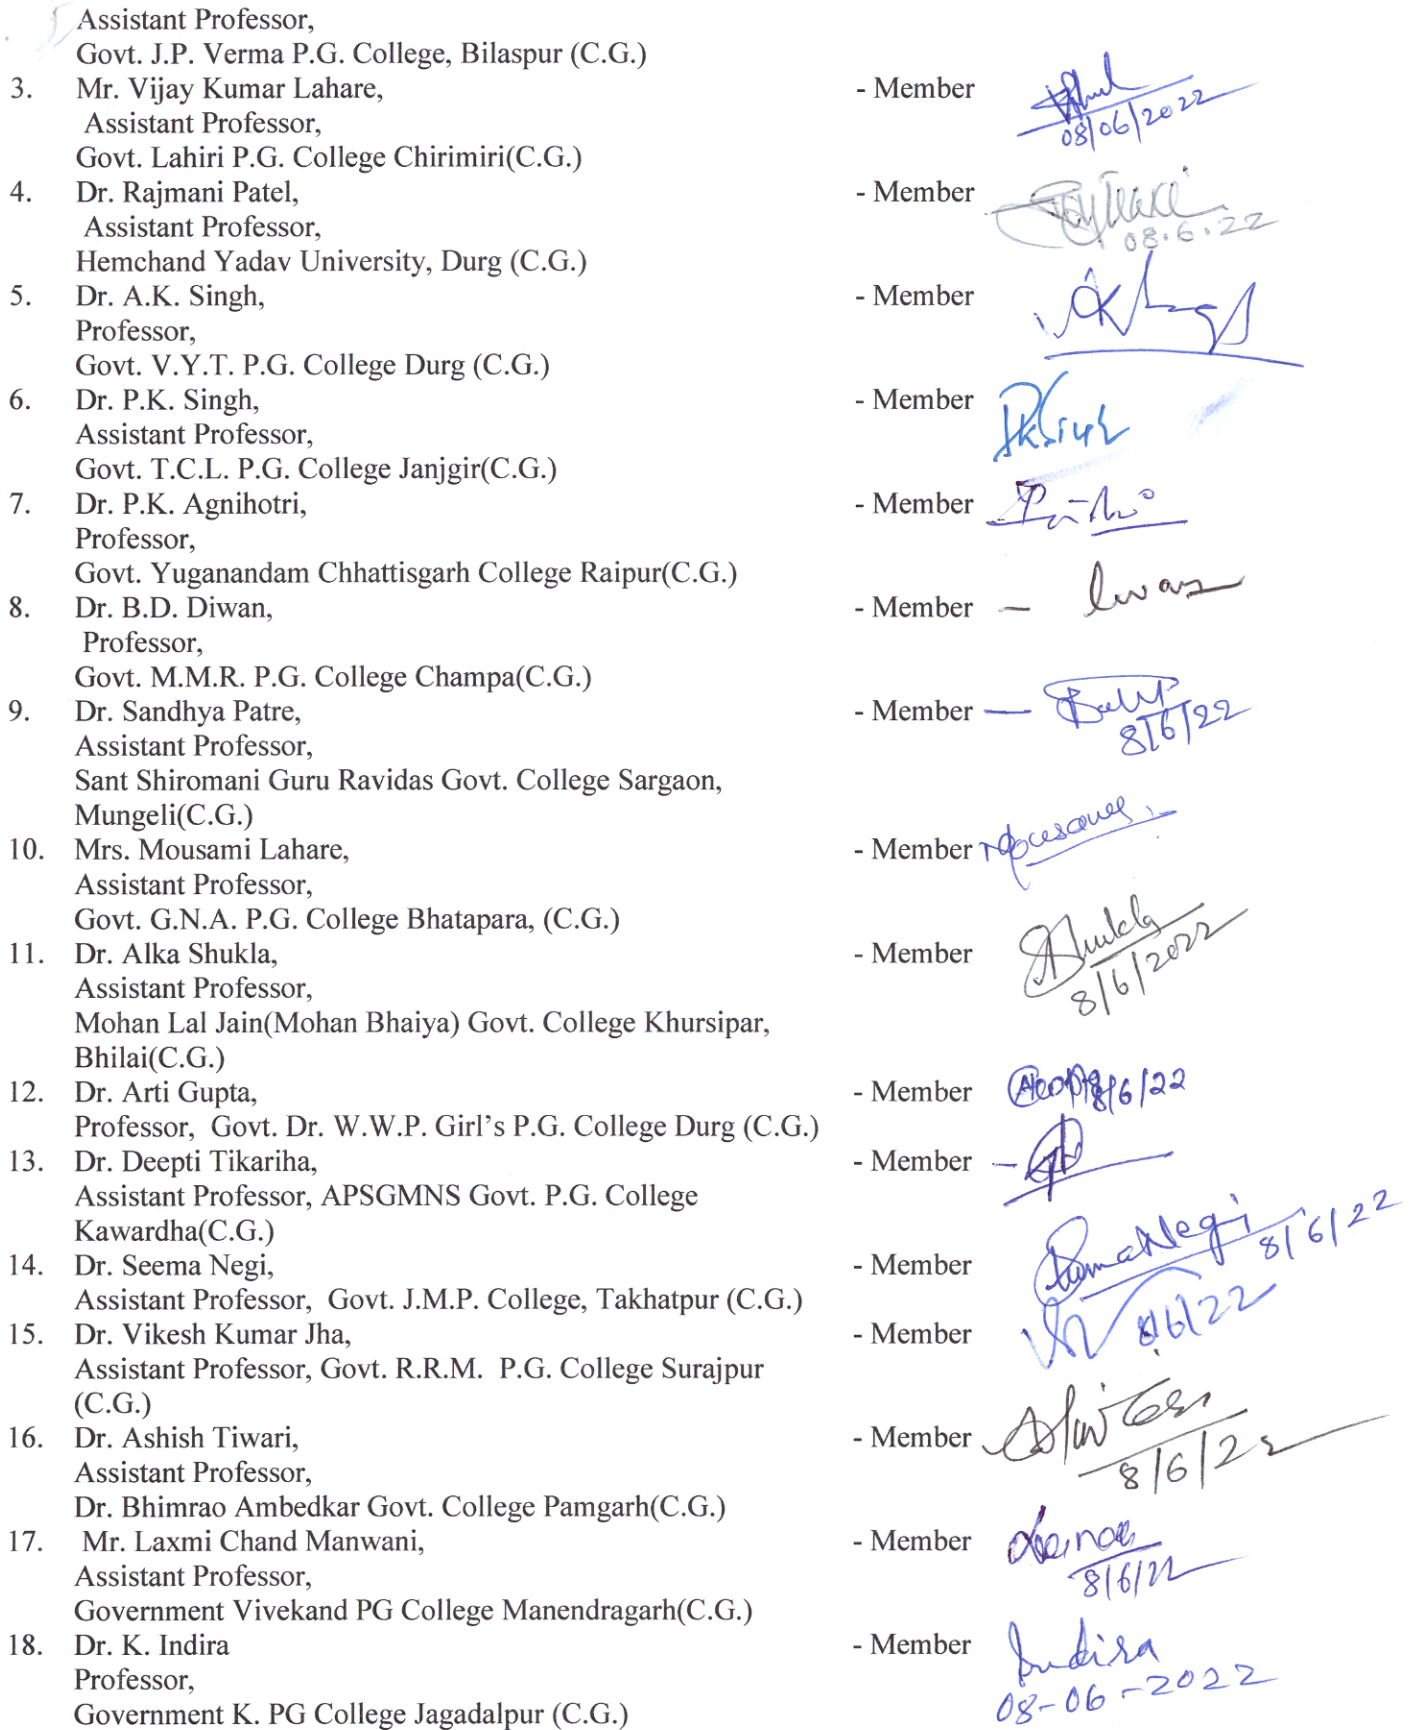 Assistant Professor,
Govt. J.P. Verma P.G. College, Bilaspur (C.G.)
3. Mr. Vijay Kumar Lahare, - Member
Assistant Professor, 08/06/2022
Govt. Lahiri P.G. College Chirimiri(C.G.)
4. Dr. Rajmani Patel, - Member
Assistant Professor, 08.6.22
Hemchand Yadav University, Durg (C.G.)
5. Dr. A.K. Singh, - Member
Professor,
Govt. V.Y.T. P.G. College Durg (C.G.)
6. Dr. P.K. Singh, - Member
Assistant Professor,
Govt. T.C.L. P.G. College Janjgir(C.G.)
7. Dr. P.K. Agnihotri, - Member
Professor,
Govt. Yuganandam Chhattisgarh College Raipur(C.G.)
8. Dr. B.D. Diwan, - Member —
Professor,
Govt. M.M.R. P.G. College Champa(C.G.)
9. Dr. Sandhya Patre, - Member —
Assistant Professor, 8/6/22
Sant Shiromani Guru Ravidas Govt. College Sargaon,
Mungeli(C.G.)
10. Mrs. Mousami Lahare, - Member
Assistant Professor,
Govt. G.N.A. P.G. College Bhatapara, (C.G.)
11. Dr. Alka Shukla, - Member Shukla
Assistant Professor, 8/6/2022
Mohan Lal Jain(Mohan Bhaiya) Govt. College Khursipar,
Bhilai(C.G.)
12. Dr. Arti Gupta, - Member 8/6/22
Professor, Govt. Dr. W.W.P. Girl's P.G. College Durg (C.G.)
13. Dr. Deepti Tikariha, - Member —
Assistant Professor, APSGMNS Govt. P.G. College
Kawardha(C.G.)
14. Dr. Seema Negi, - Member Seema Negi 8/6/22
Assistant Professor, Govt. J.M.P. College, Takhatpur (C.G.)
15. Dr. Vikesh Kumar Jha, - Member 8/6/22
Assistant Professor, Govt. R.R.M. P.G. College Surajpur
(C.G.)
16. Dr. Ashish Tiwari, - Member
Assistant Professor, 8/6/22
Dr. Bhimrao Ambedkar Govt. College Pamgarh(C.G.)
17. Mr. Laxmi Chand Manwani, - Member
Assistant Professor, 8/6/22
Government Vivekand PG College Manendragarh(C.G.)
18. Dr. K. Indira - Member Indira
Professor, 08-06-2022
Government K. PG College Jagadalpur (C.G.)